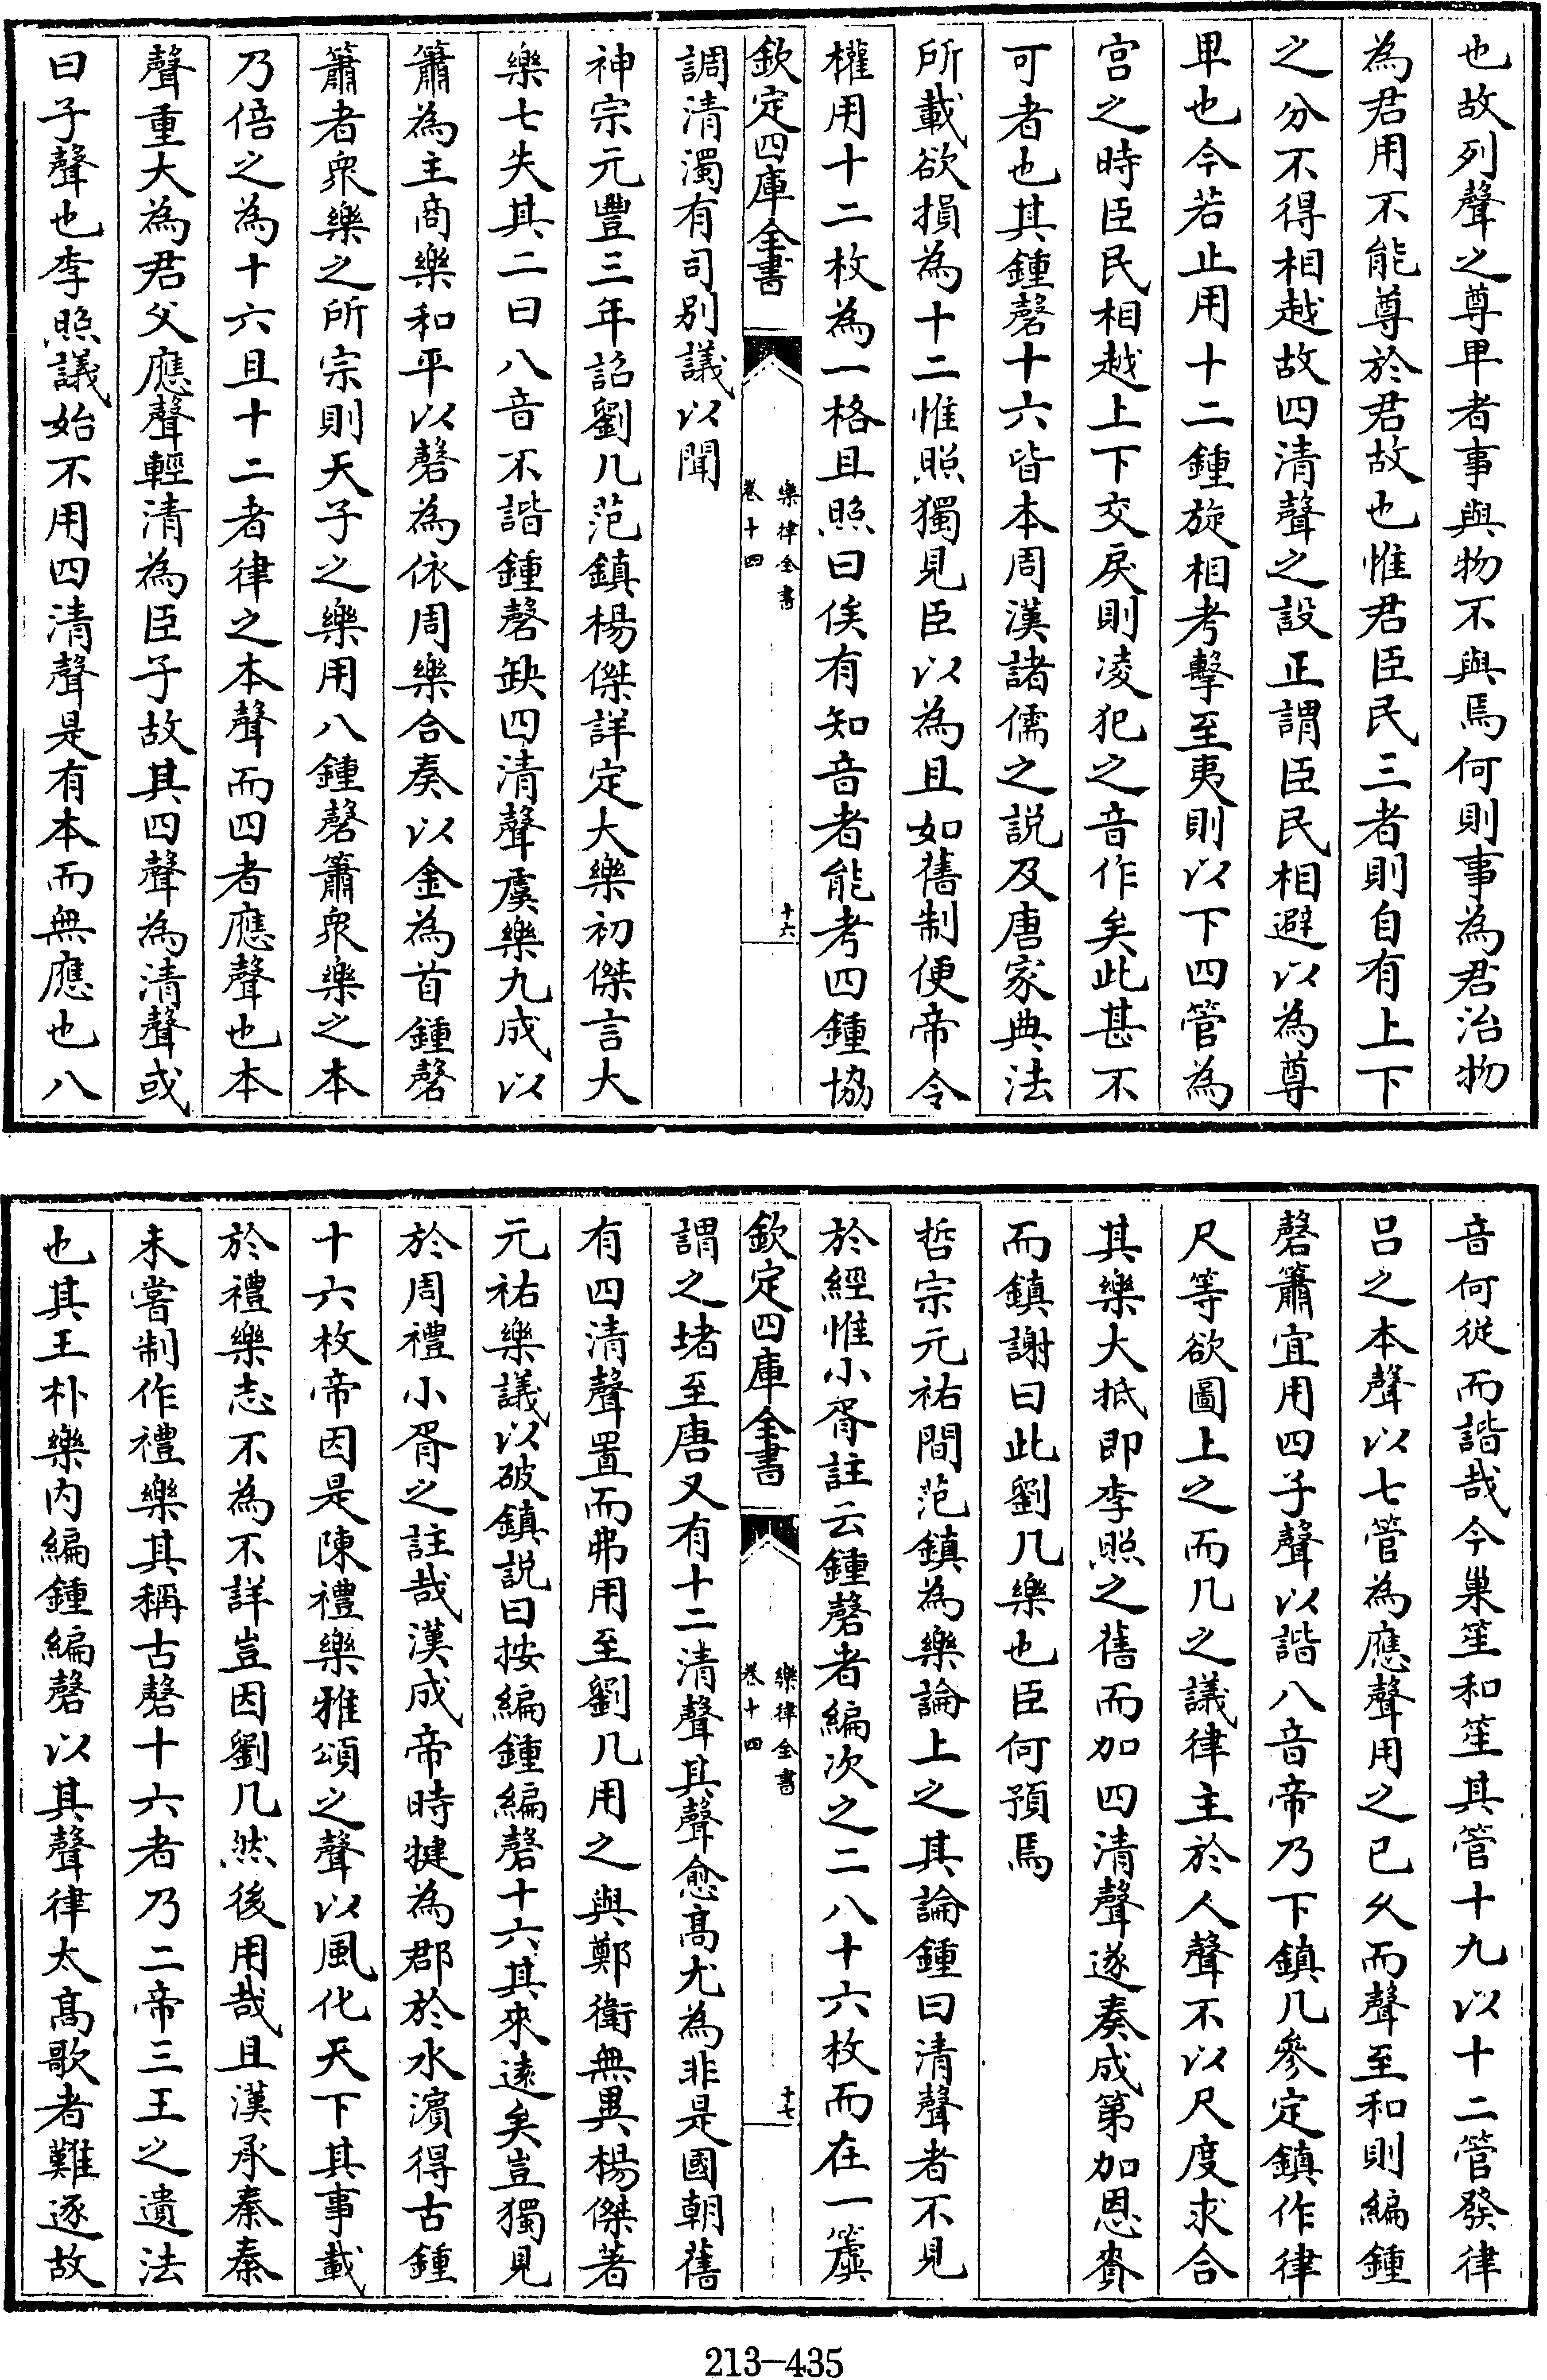 也故列聲之尊卑者事與物不與焉何則事為君治物
為君用不能尊於君故也惟君臣民三者則自有上下
之分不得相越故四清聲之設正謂臣民相避以為尊
卑也今若止用十二鍾旋相考擊至夷則以下四管為
宫之時臣民相越上下交戾則凌犯之音作矣此甚不
可者也其鍾磬十六皆本周漢諸儒之説及唐家典法
所載欲損為十二惟照獨見臣以為且如舊制便帝令
權用十二枚為一格且照曰俟有知音者能考四鍾協
欽定四庫全書
樂律全書
卷十四
十六
調清濁有司别議以聞
神宗元豐三年詔劉几范鎮楊傑詳定大樂初傑言大
樂七失其二曰八音不諧鍾磬缺四清聲虞樂九成以
簫為主商樂和平以磬為依周樂合奏以金為首鍾磬
簫者衆樂之所宗則天子之樂用八鍾磬簫衆樂之本
乃倍之為十六且十二者律之本聲而四者應聲也本
聲重大為君父應聲輕清為臣子故其四聲為清聲或
曰子聲也李照議始不用四清聲是有本而無應也八
音何從而諧哉今巢笙和笙其管十九以十二管發律
吕之本聲以七管為應聲用之已久而聲至和則編鍾
磬簫宜用四子聲以諧八音帝乃下鎮几參定鎮作律
尺等欲圖上之而几之議律主於人聲不以尺度求合
其樂大抵即李照之舊而加四清聲遂奏成第加恩賚
而鎮謝曰此劉几樂也臣何預焉
哲宗元祐間范鎮為樂論上之其論鍾曰清聲者不見
於經惟小胥註云鍾磬者編次之二八十六枚而在一簴
欽定四庫全書
樂律全書
卷十四
十七
謂之堵至唐又有十二清聲其聲愈髙尤為非是國朝舊
有四清聲置而弗用至劉几用之與鄭衛無異楊傑著
元祐樂議以破鎮説曰按編鍾編磬十六其來逺矣豈獨見
於周禮小胥之註哉漢成帝時犍為郡於水濵得古鍾
十六枚帝因是陳禮樂雅頌之聲以風化天下其事載
於禮樂志不為不詳豈因劉几然後用哉且漢承秦秦
未嘗制作禮樂其稱古磬十六者乃二帝三王之遺法
也其王朴樂内編鍾編磬以其聲律太髙歌者難逐故
213-435